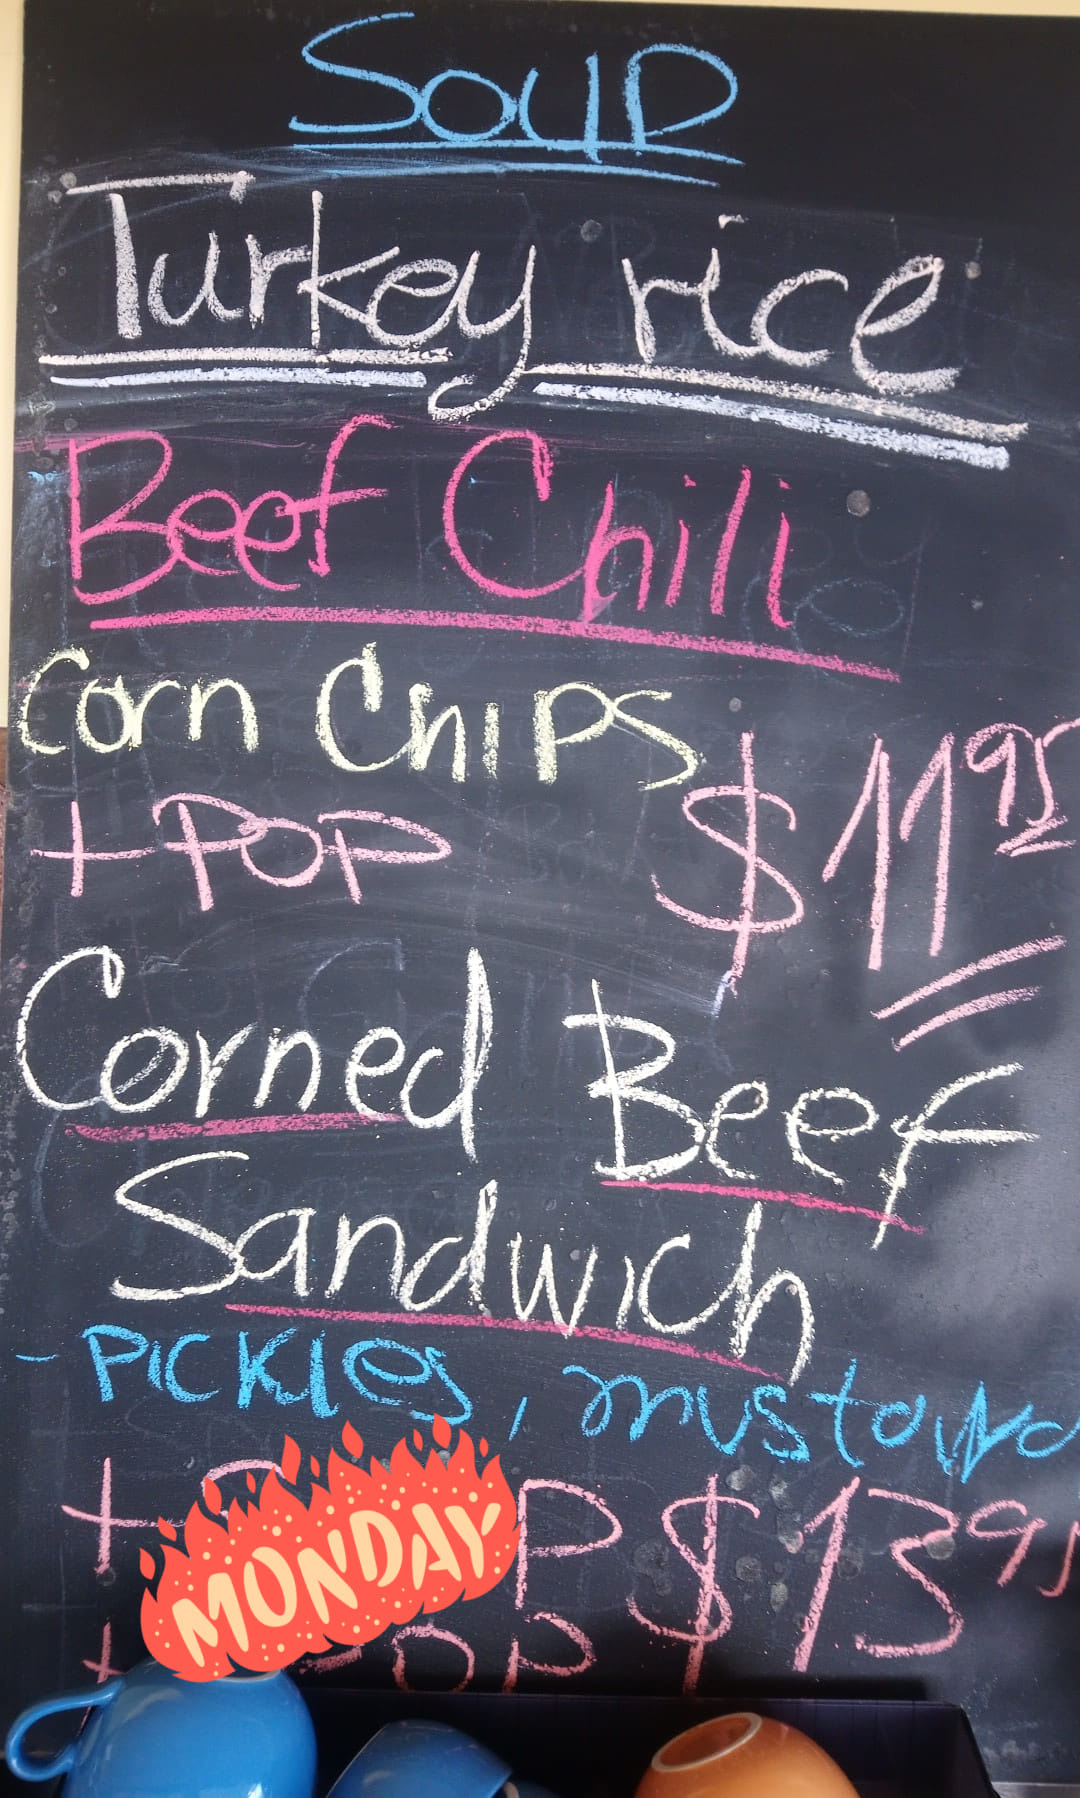 Soup
Turkey rice
Beef Chili
Corn Chips
+ POP $11.95
Corned Beef
Sandwich
- PICKLES, mustard
+ P $13.95
MONDAY
+ POP